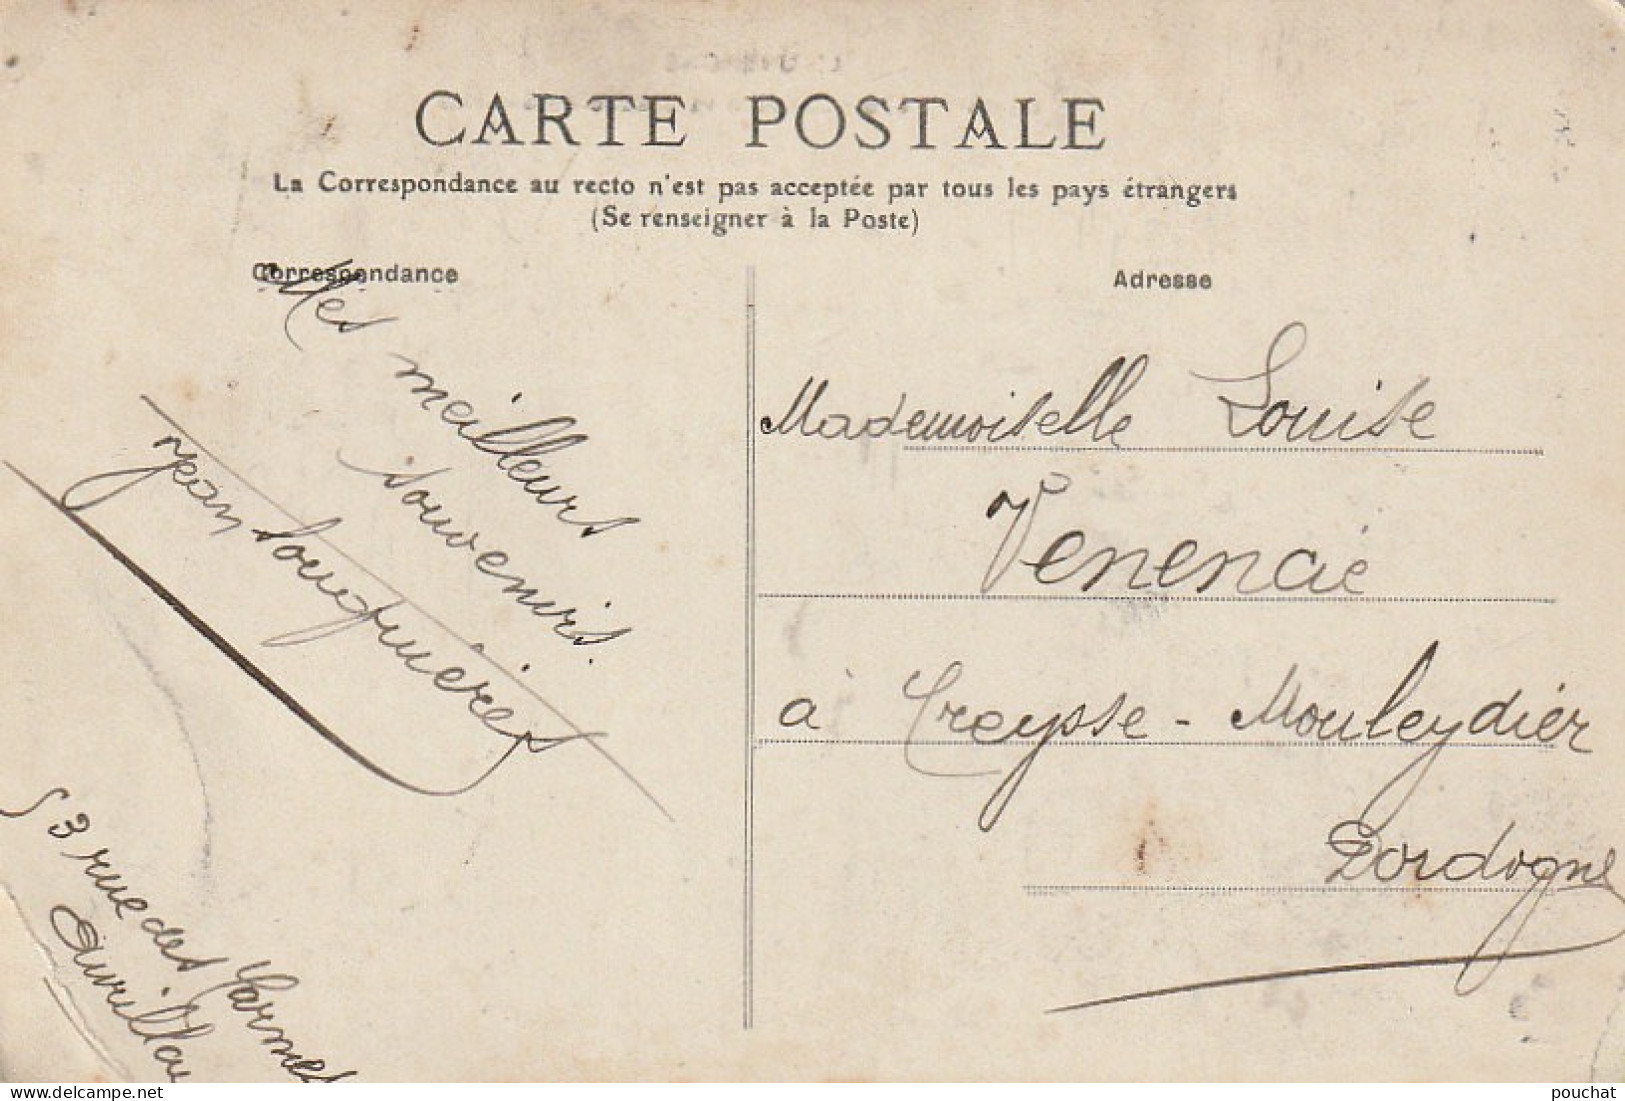 CARTE POSTALE
La Correspondance au recto n'est pas acceptée par tous les pays étrangers
(Se renseigner à la Poste)
Correspondance
Mes
meilleurs
souvenirs.
Jean
53 rue des Carmes
Aurillac
Adresse
Mademoiselle Louise
Venencie
à Creysse - Mouleydier
Dordogne
pouchat